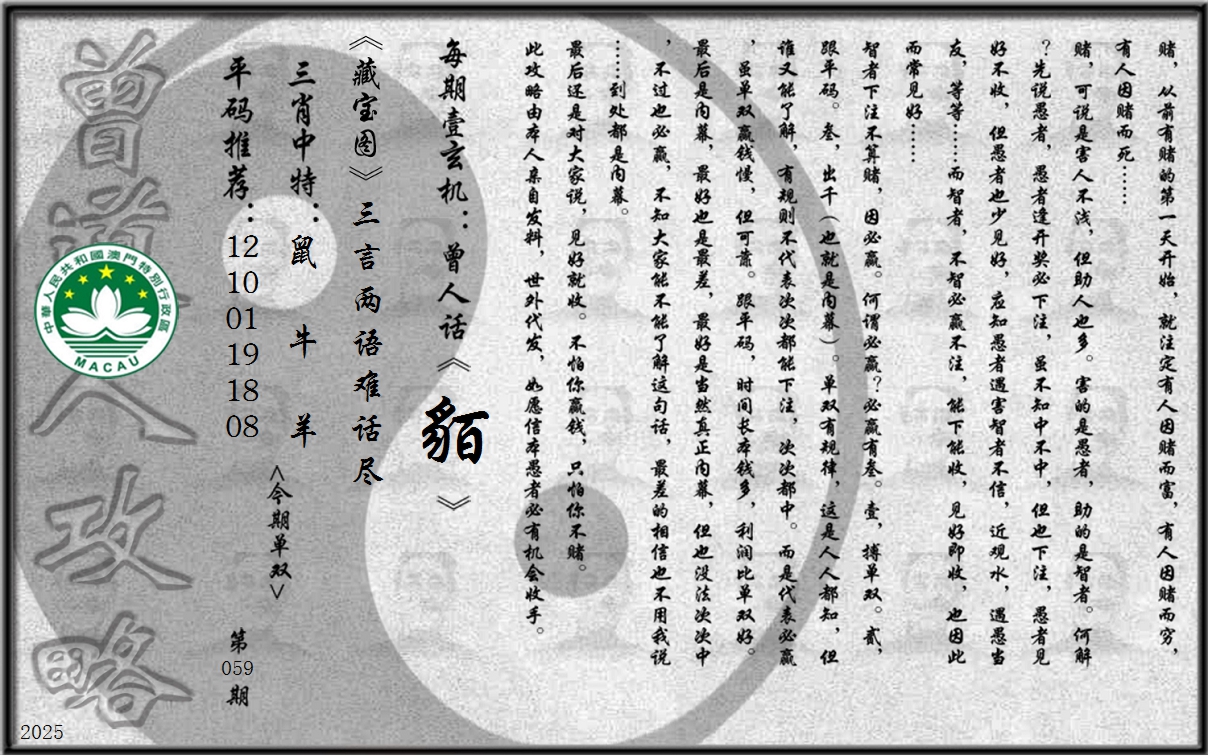 赌，从前有赌的第一天开始，就注定有人因赌而富，有人因赌而穷，
有人因赌而死……
赌，可说是害人不浅，但助人也多。害的是愚者，助的是智者。何解
？先说愚者，愚者逢开奖必下注，虽不知中不中，但也下注，愚者见
好不收，但愚者也少见好，应知愚者遇害智者不信，近观水，遇愚当
友，等等……而智者，不智必赢不注，能下能收，见好即收，也因此
而常见好……
智者下注不算赌，因必赢。何谓必赢？必赢有叁。壹，搏单双。贰，
跟平码。叁，出千（也就是内幕）。单双有规律，这是人人都知，但
谁又能了解，有规则不代表次次都能下注，次次都中。而是代表必赢
，虽单双赢钱慢，但可靠。跟平码，时间长本钱多，利润比单双好。
最后是内幕，最好也是最差，最好是当然真正内幕，但也没法次次中
，不过也必赢，不知大家能不能了解这句话，最差的相信也不用我说
……到处都是内幕。
最后还是对大家说，见好就收。不怕你赢钱，只怕你不赌。
此攻略由本人亲自发料，世外代发，如愿信本愚者必有机会收手。
每期壹玄机：曾人话《貊》
《藏宝图》三言两语难话尽
三肖中特：鼠 牛 羊
<今期单双>
平码推荐：12 10 01 19 18 08
第059期
曾道人攻略
中華人民共和國澳門特別行政區
MACAU
2025